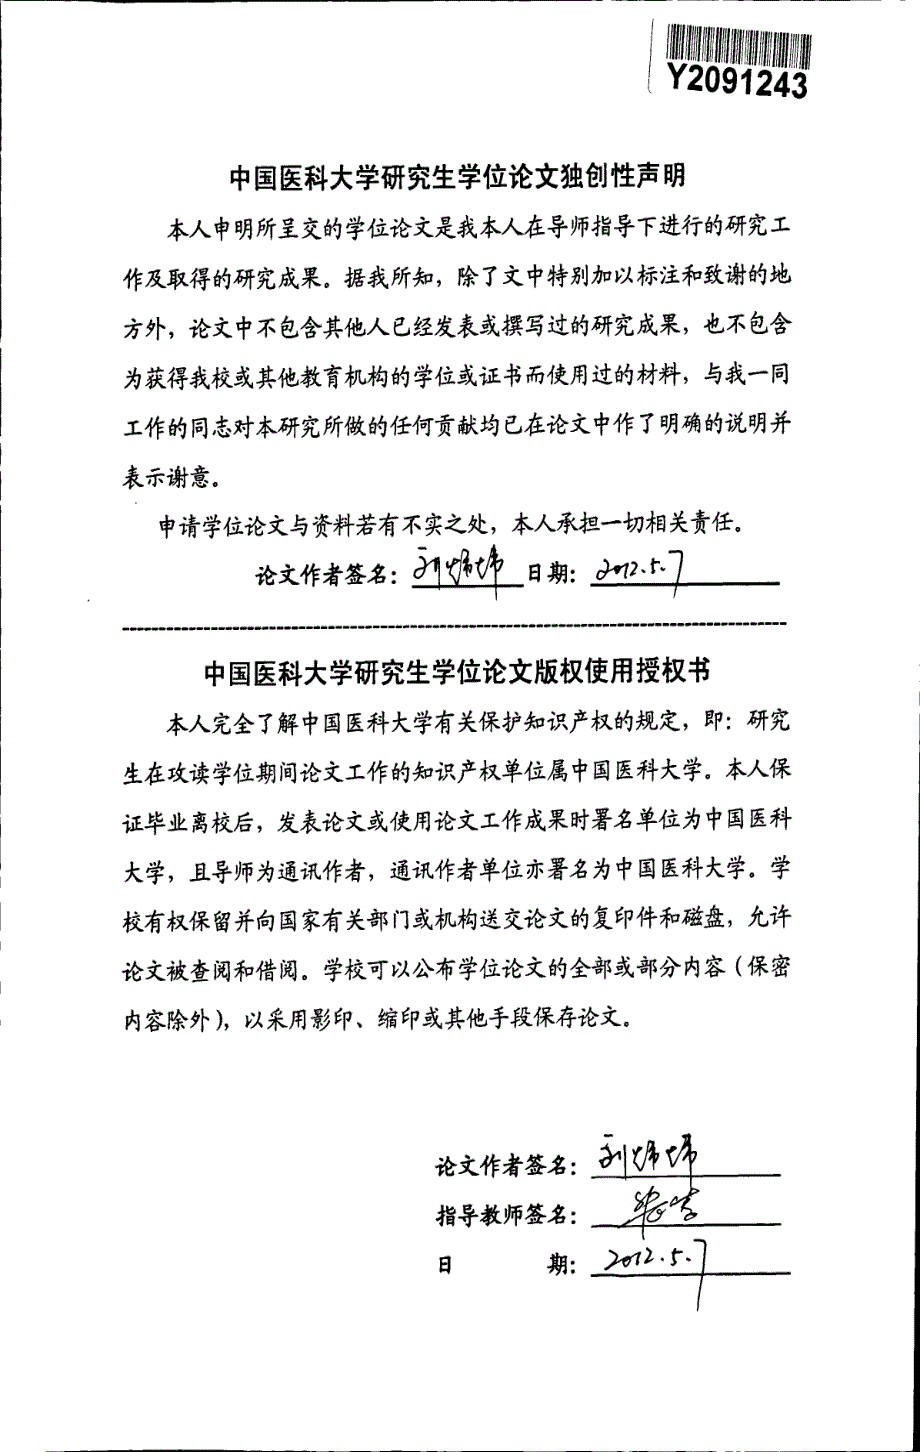 Y2091243
中国医科大学研究生学位论文独创性声明
本人申明所呈交的学位论文是我本人在导师指导下进行的研究工
作及取得的研究成果。据我所知，除了文中特别加以标注和致谢的地
方外，论文中不包含其他人已经发表或撰写过的研究成果，也不包含
为获得我校或其他教育机构的学位或证书而使用过的材料，与我一同
工作的同志对本研究所做的任何贡献均已在论文中作了明确的说明并
表示谢意。
申请学位论文与资料若有不实之处，本人承担一切相关责任。
论文作者签名： 日期：2012.5.7
中国医科大学研究生学位论文版权使用授权书
本人完全了解中国医科大学有关保护知识产权的规定，即：研究
生在攻读学位期间论文工作的知识产权单位属中国医科大学。本人保
证毕业离校后，发表论文或使用论文工作成果时署名单位为中国医科
大学，且导师为通讯作者，通讯作者单位亦署名为中国医科大学。学
校有权保留并向国家有关部门或机构送交论文的复印件和磁盘，允许
论文被查阅和借阅。学校可以公布学位论文的全部或部分内容（保密
内容除外），以采用影印、缩印或其他手段保存论文。
论文作者签名：
指导教师签名：
日 期：2012.5.7